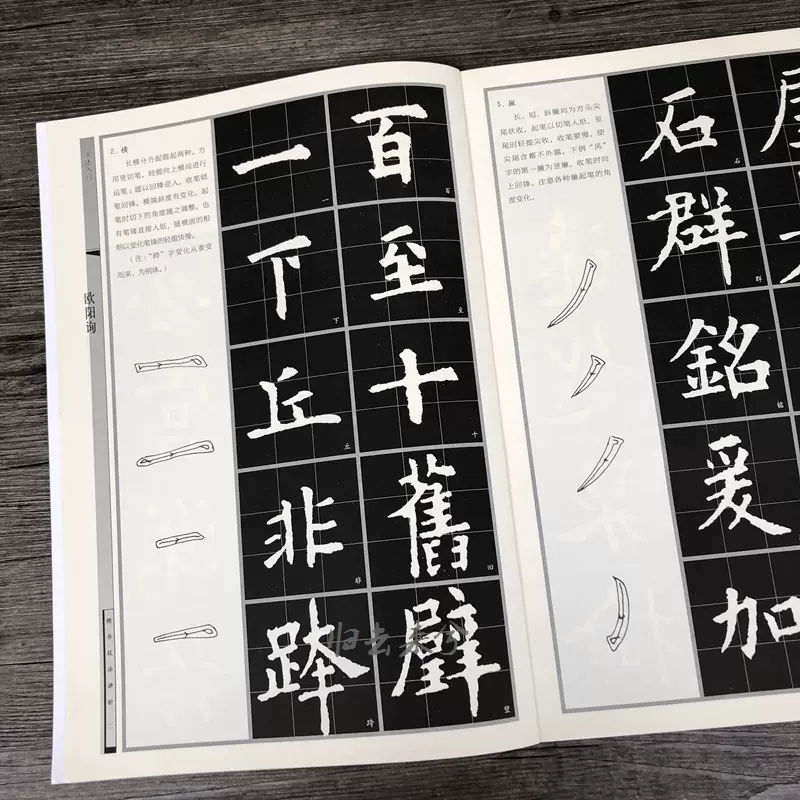 书法入门
欧阳询
楷书技法讲析
2、横
长横分方起圆起两种，方
用竖切笔，轻提向上横间进行
运笔；圆以回锋逆入，收笔顿
笔回锋。横端斜度有变化，起
笔时切下的角度随之调整，也
有笔锋直接入纸，随横画的粗
细以变化笔锋的轻重快慢。
（注："跨"字变化从隶变
而来，为别体。）
百 一
百 一
至 下
至 下
十 丘
十 丘
舊 非
旧 非
壁 跨
壁 跨
归去来兮
3、撇
长、短、斜撇均为方头尖
尾状收，起笔以切笔入纸，至
尾时轻提尖收，收笔要慢，使
尖尾含蓄不外露。下例"风"
字的第一撇为竖撇，收笔时向
上回锋。注意各种撇起笔的角
度变化。
石
石
群
群
銘
铭
爰
加